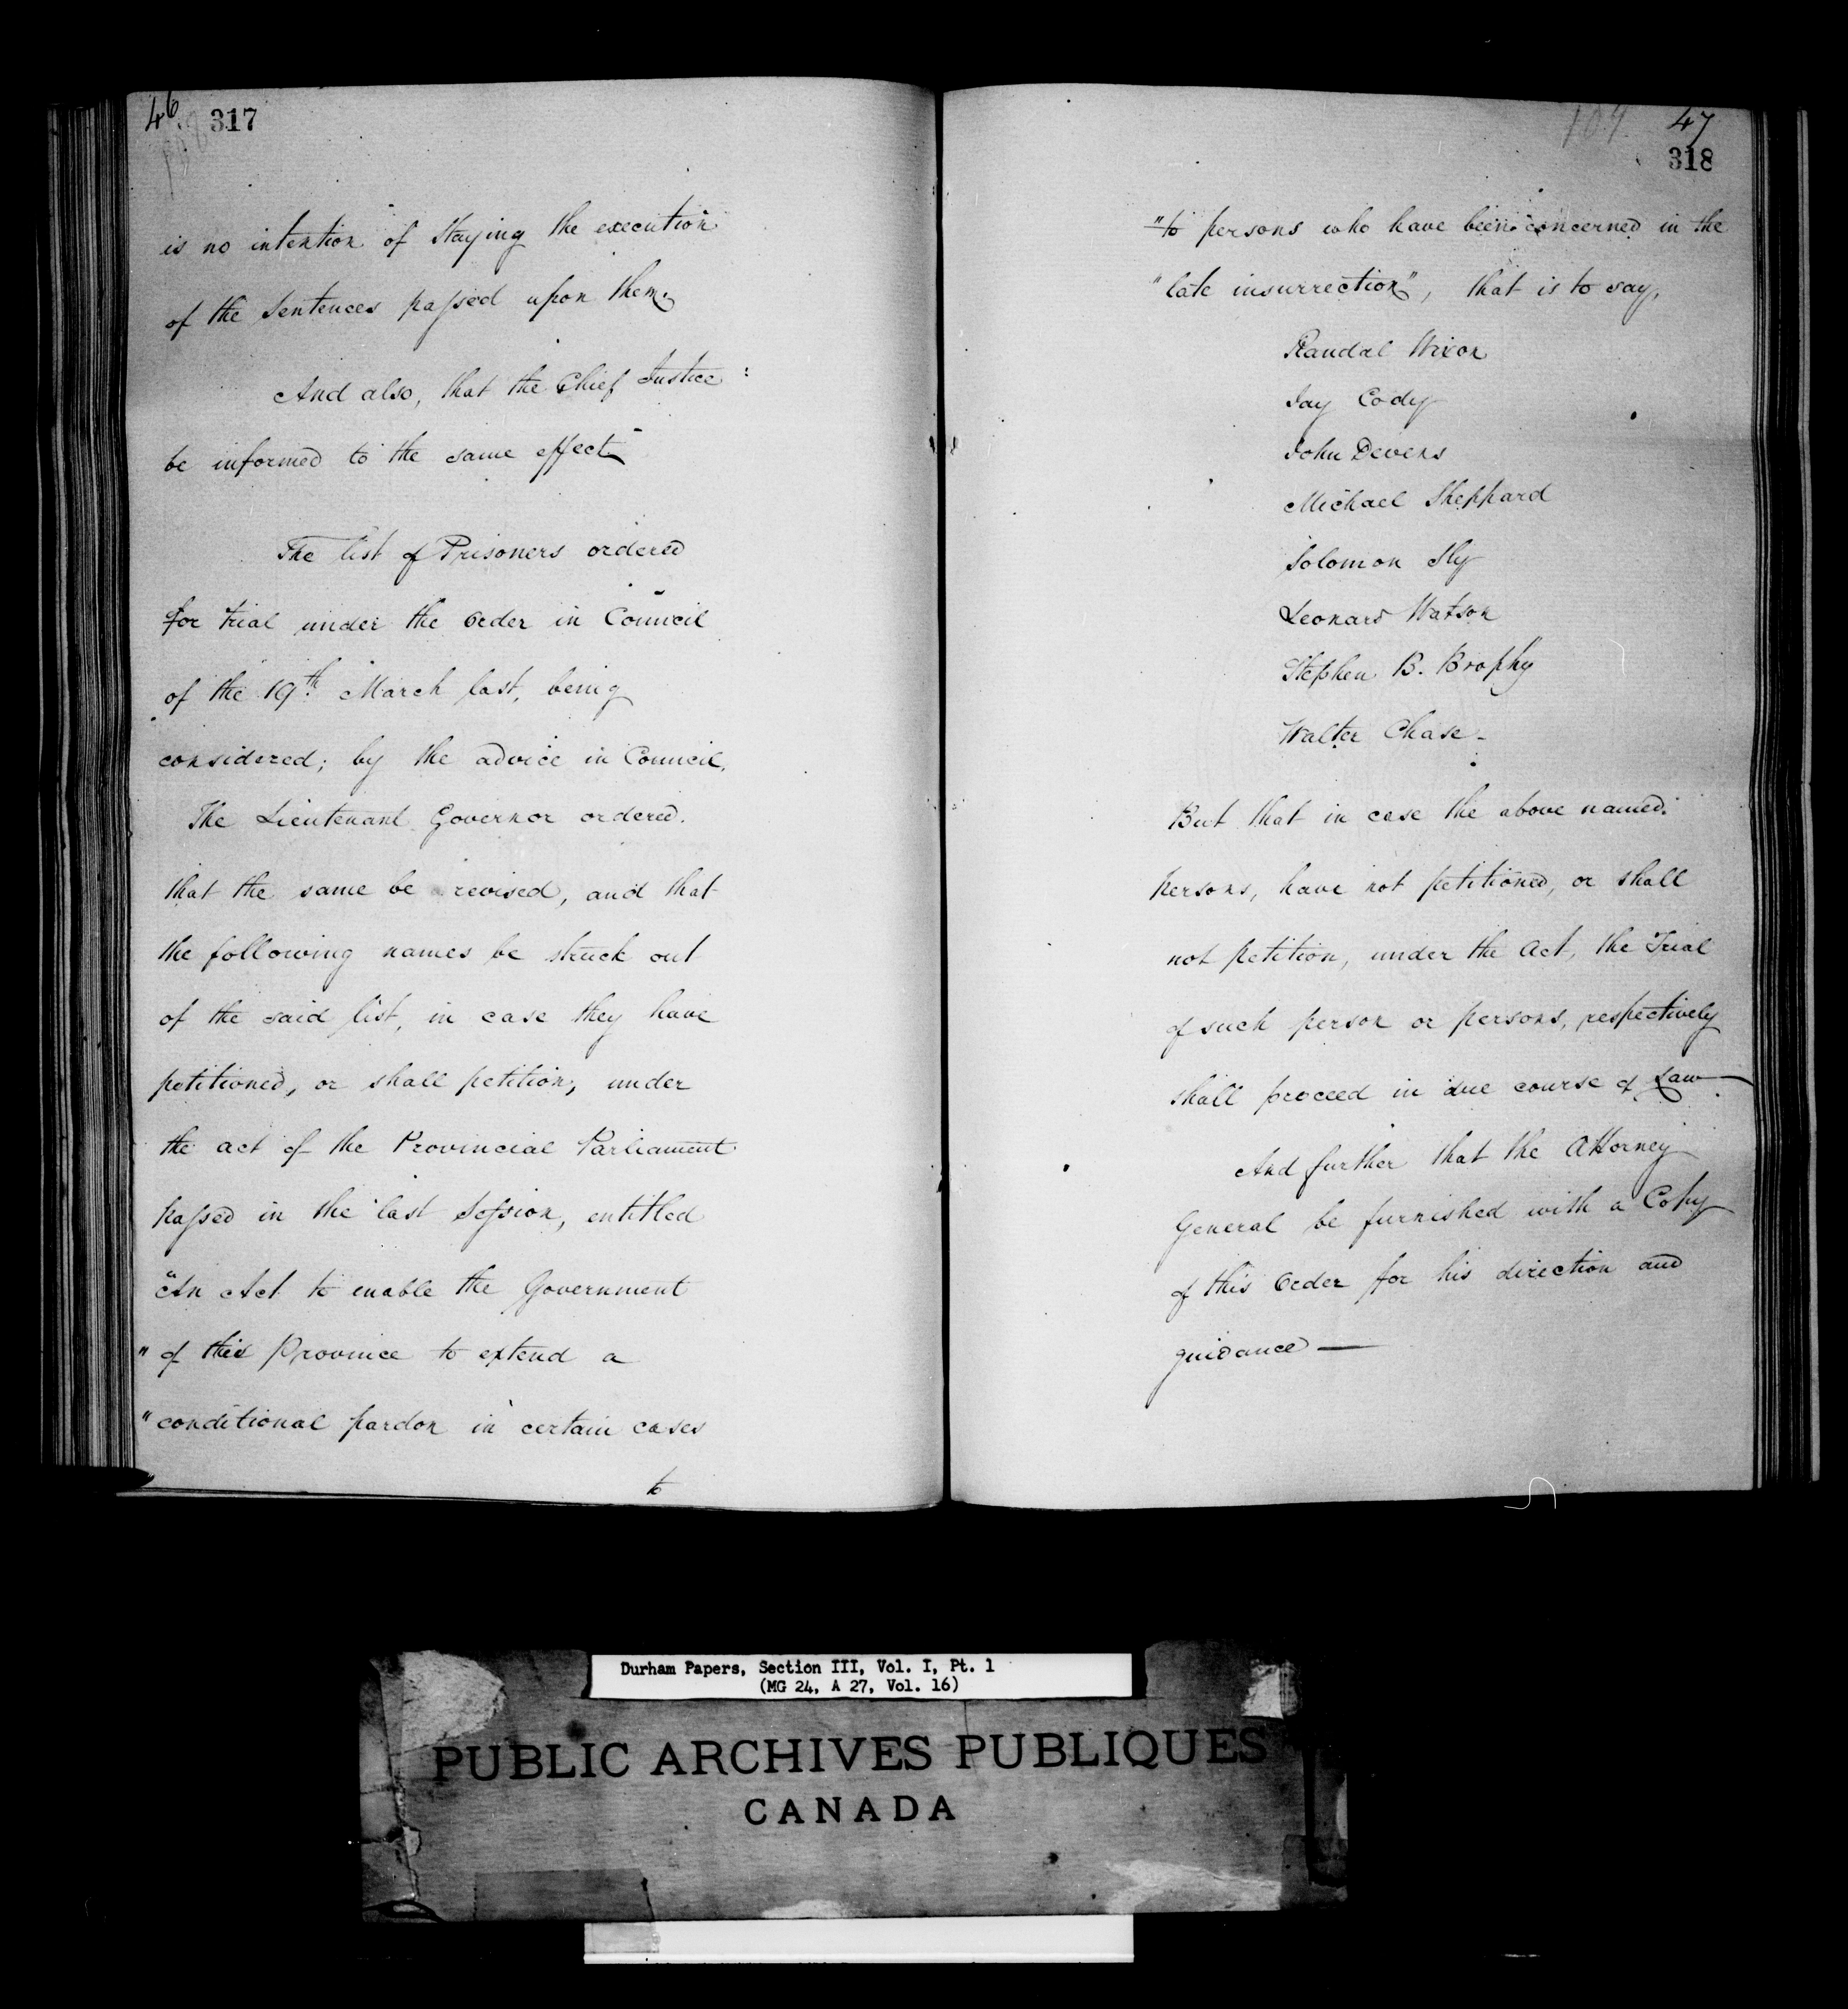 46 317
is no intention of staying the execution
of the Sentences passed upon them.
And also, that the Chief Justice
be informed to the same effect
The list of Prisoners ordered
for trial under the order in Council
of the 19th March last, being
considered; by the advice in Council,
The Lieutenant Governor ordered.
that the same be revised, and that
the following names be struck out
of the said list, in case they have
petitioned, or shall petition, under
the act of the Provincial Parliament
passed in the last Session, entitled
"An Act to enable the Government
" of this Province to extend a
" conditional pardon in certain cases
to
109 47
318
"to persons who have been concerned in the
"late insurrection", that is to say,
Randal Wixon
Jay Cody
John Devens
Michael Sheppard
Solomon Sly
Leonard Watson
Stephen B. Brophy
Walter Chase -
But that in case the above named
persons, have not petitioned, or shall
not petition, under the Act, the Trial
of such person or persons, respectively
shall proceed in due course of Law
And further that the Attorney
General be furnished with a Copy
of this Order for his direction and
guidance —
Durham Papers, Section III, Vol. I, Pt. 1
(MG 24, A 27, Vol. 16)
PUBLIC ARCHIVES PUBLIQUES
CANADA